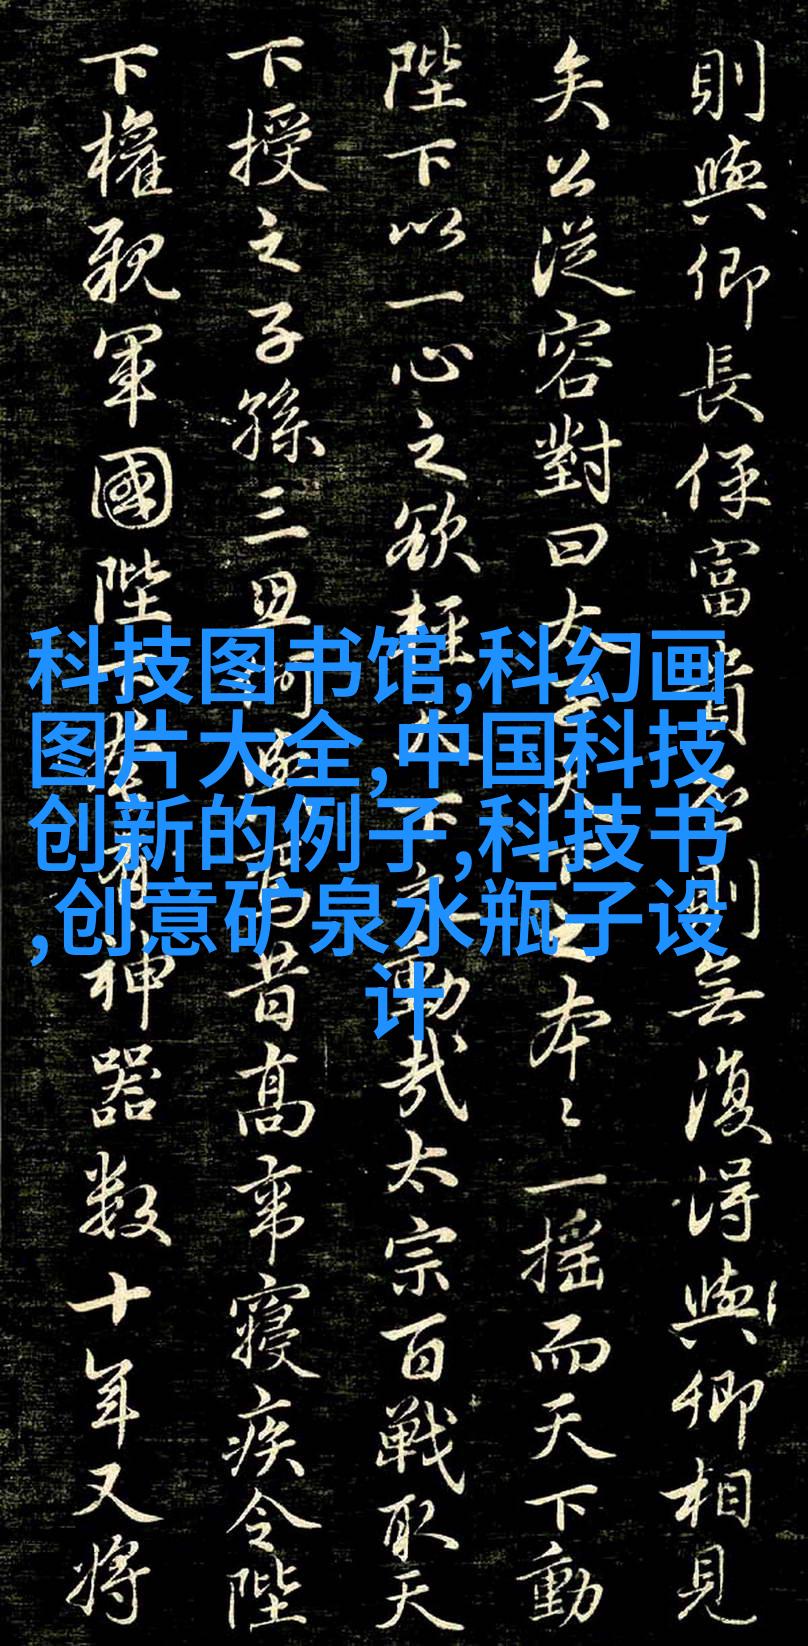 則與卿長保富貴不則無復得與卿相見
矣公從容對曰太子天下之本〻一摇而天下動
陛下以一心之欲輕天下之動哉太宗百戰取天
下授之子孫三思何與焉昔高帝寢疾令陛
下權親軍國陛下奄有神器数十年又將
科技图书馆,科幻画
图片大全,中国科技
创新的例子,科技书
,创意矿泉水瓶子设
计